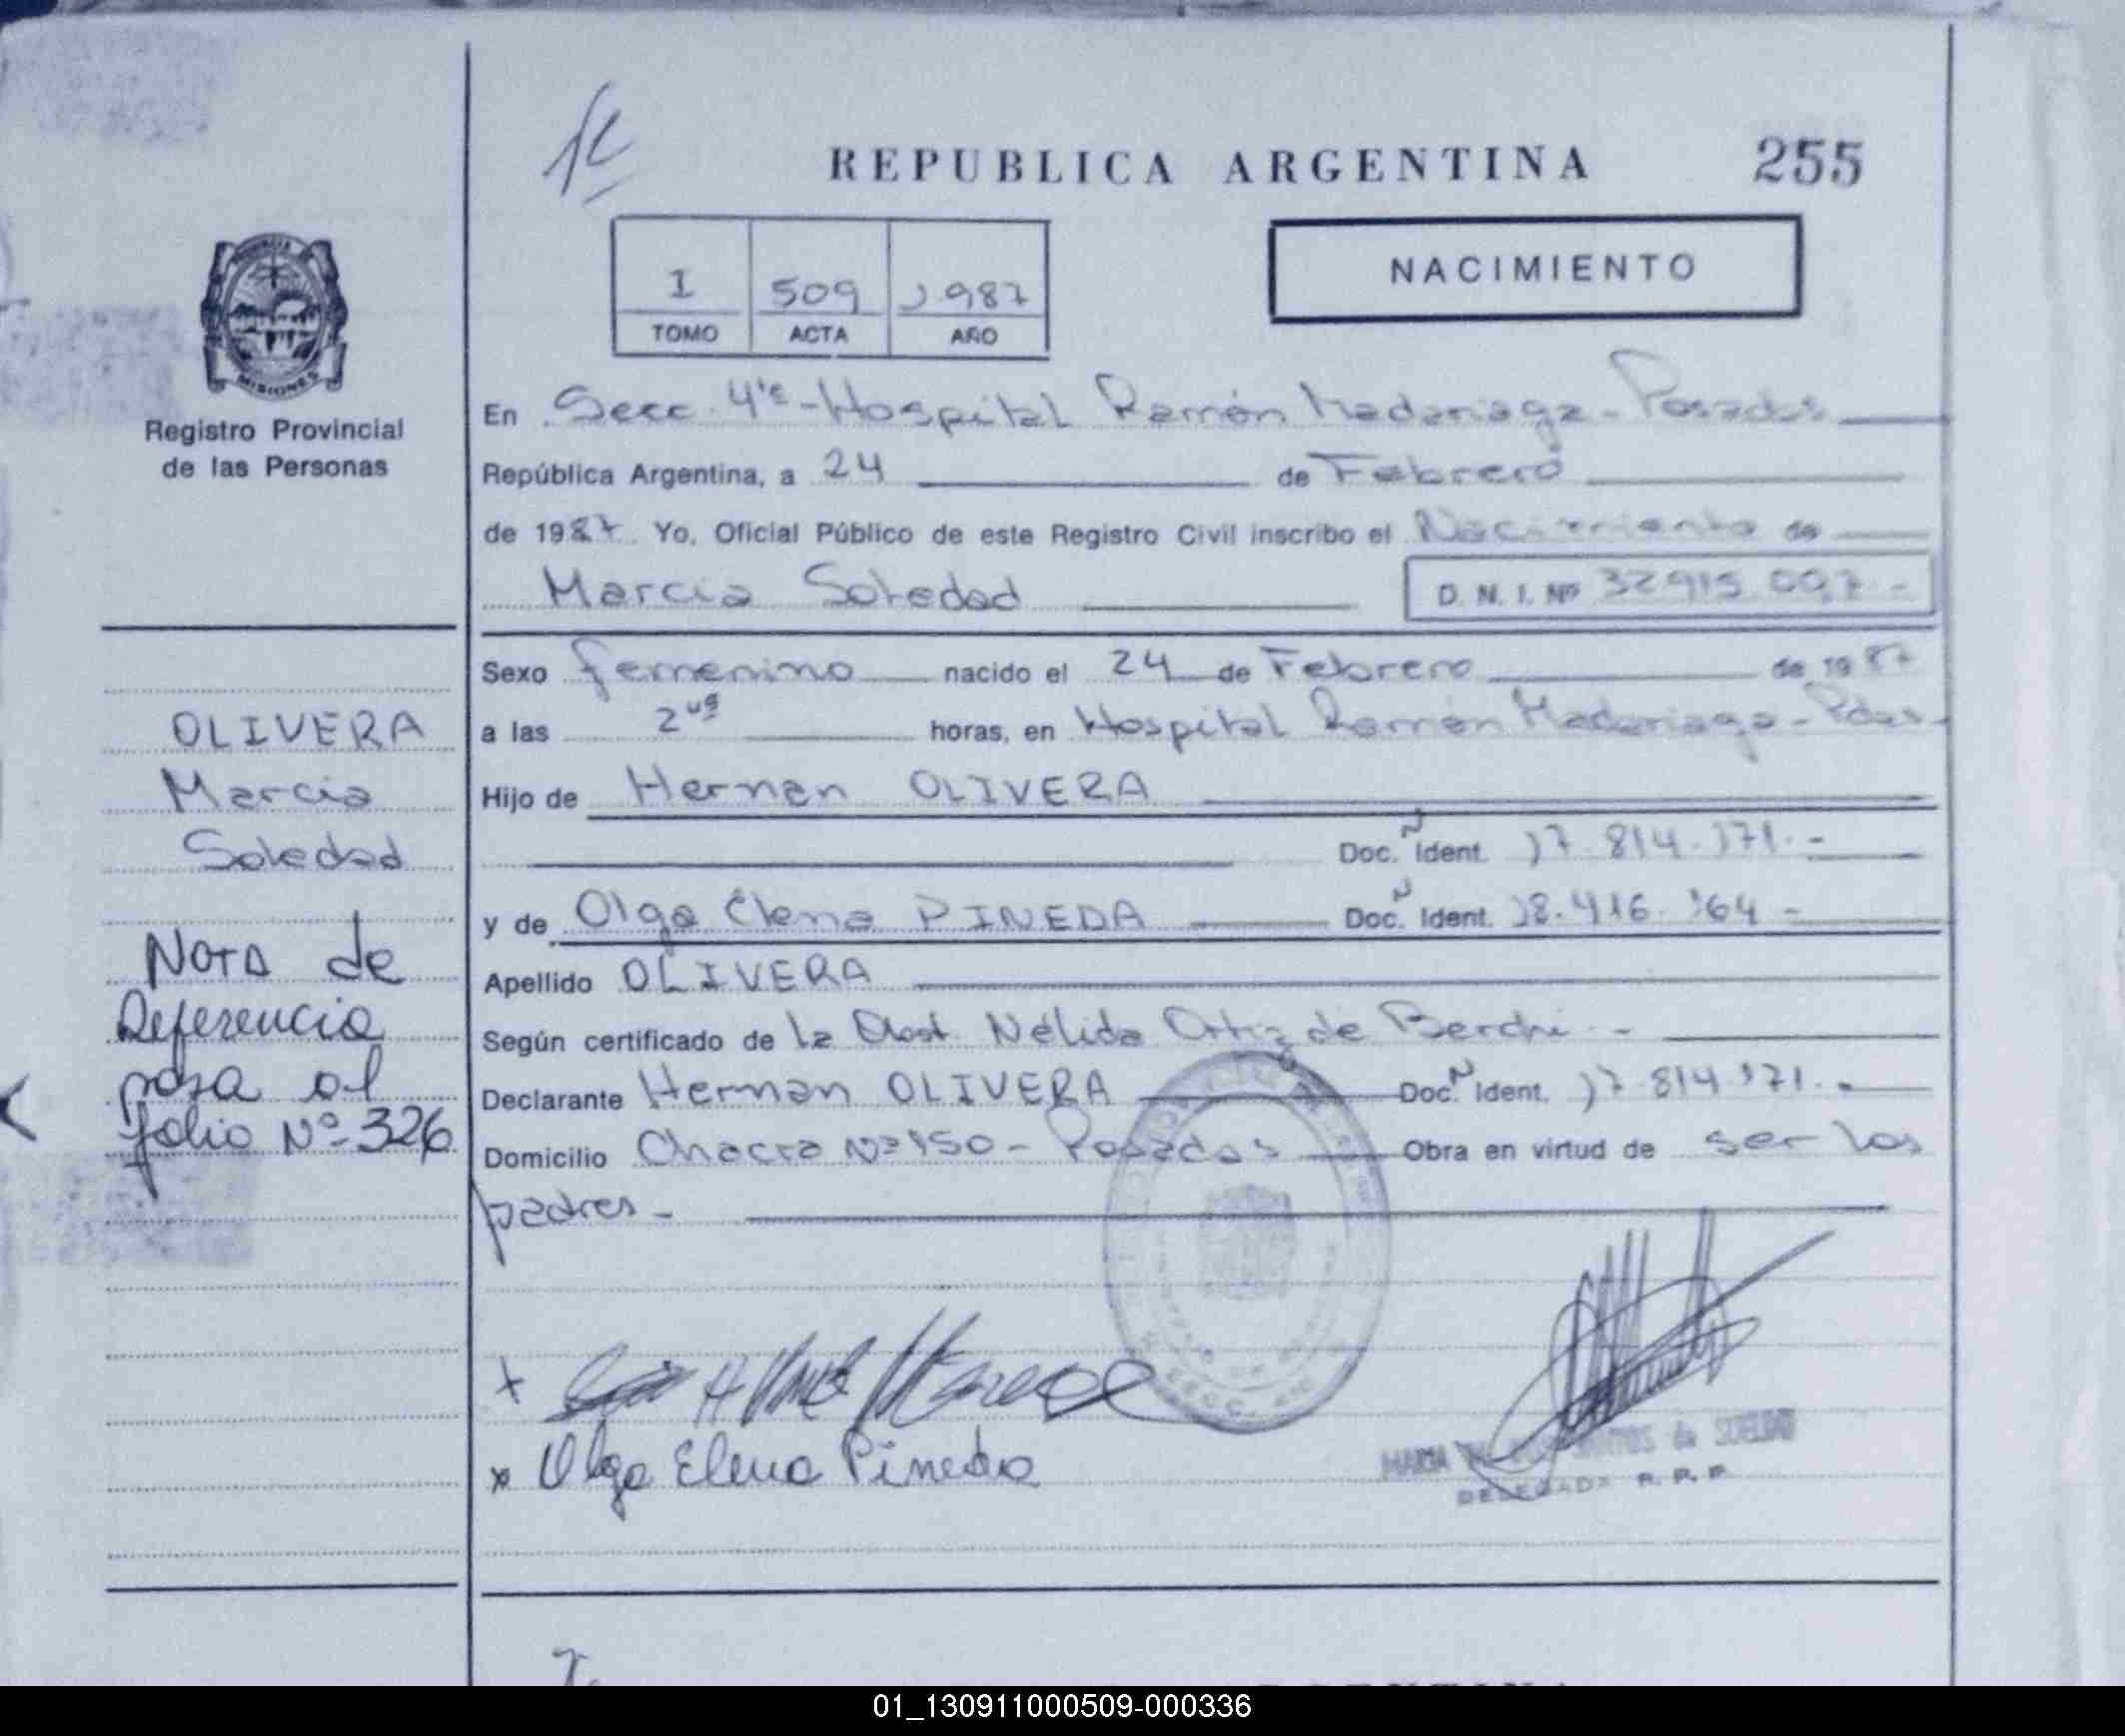 REPUBLICA ARGENTINA 255
NACIMIENTO
I 509 1987
TOMO ACTA AÑO
MISIONES
Registro Provincial
de las Personas
En Secc. 4ta - Hospital Ramón Madariaga - Posadas
República Argentina, a 24 de Febrero
de 1987 Yo, Oficial Público de este Registro Civil inscribo el Nacimiento de
Marcia Soledad D. N. I. Nº 32915.007.-
Sexo femenino nacido el 24 de Febrero de 1987
a las 2 horas, en Hospital Ramón Madariaga - Pdas-
Hijo de Hernan OLIVERA
Doc. Ident. 17.814.171.-
y de Olga Elena PINEDA Doc. Ident. 18.416.164 -
Apellido OLIVERA
Según certificado de la Obst. Nélida Ortiz de Berchi -
Declarante Hernan OLIVERA Doc. Ident. 17.814.171.-
Domicilio Chacra Nº 150 - Posadas Obra en virtud de ser los
padres -
Olga Elena Pineda
DELEGADA R. R. P.
OLIVERA
Marcia
Soledad
NOTA de
Referencia
pasa al
folio Nº 326
01_130911000509-000336